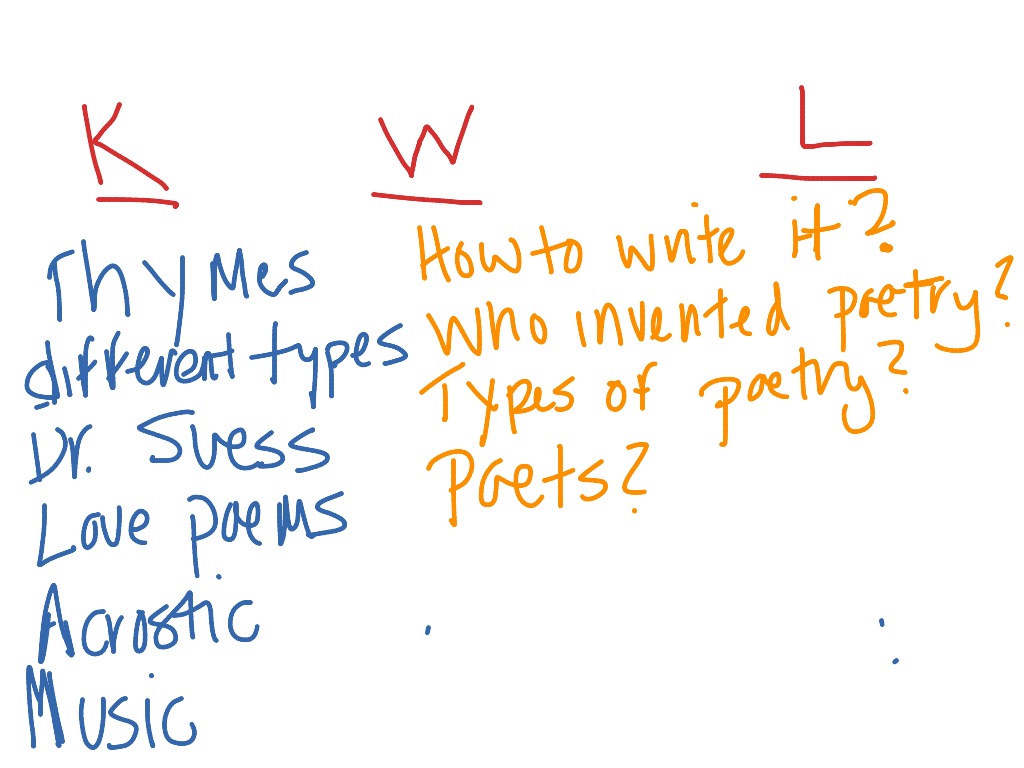 K W L
Thymes
different types
Dr. Suess
Love poems
Acrostic
Music
How to write it?
Who invented poetry?
Types of poetry?
Poets?